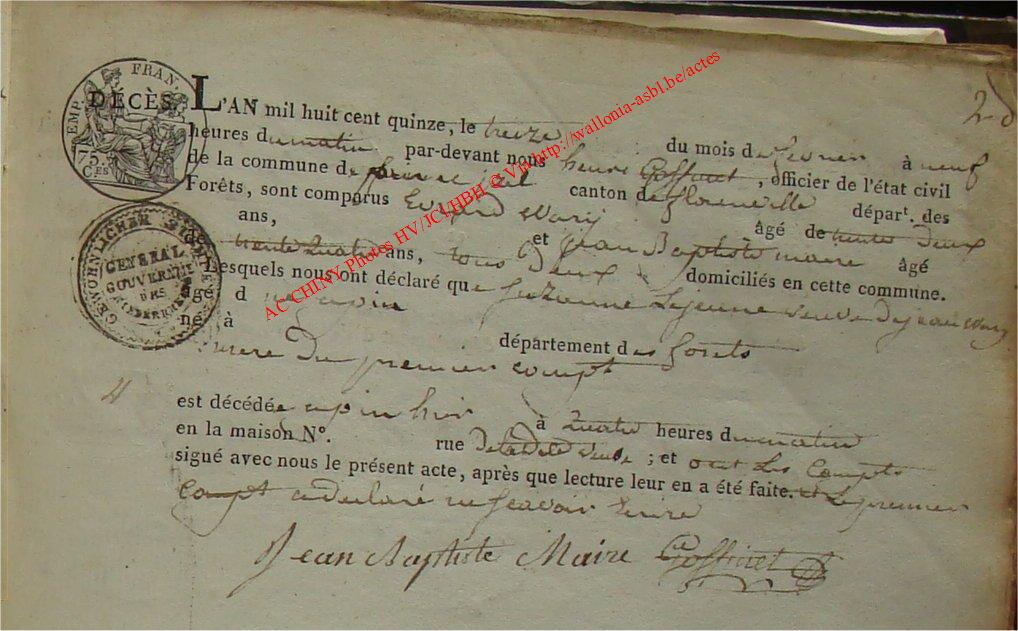 EMP. FRAN.
DÉCÈS
75.
C.ES
GEWÖHNLICHER
GENERAL
GOUVERNEM
DES
L'AN mil huit cent quinze, le treize du mois de fevrier à neuf
heures du matin par-devant nous henri Goffinet, officier de l'état civil
de la commune de canton de florenville départ. des
Forêts, sont comparus Evrard Wary âgé de trente deux
ans, et jean Baptiste maire âgé
de trente quatre ans, tous deux domiciliés en cette commune.
Lesquels nous ont déclaré que Suzanne Lejeune veuve de jean Wary
âgé d
né à département des forets
mere du premier compt
4
est décédée à quatre heures du matin
en la maison N°. rue ; et ont les Compts
signé avec nous le présent acte, après que lecture leur en a été faite. et le premier
Compt a declaré ne scavoir Ecrire
Jean Baptiste Maire Goffinet
AC CHINY Photos HV/JCVHBH G Vin http://wallonia-asbl.be/actes